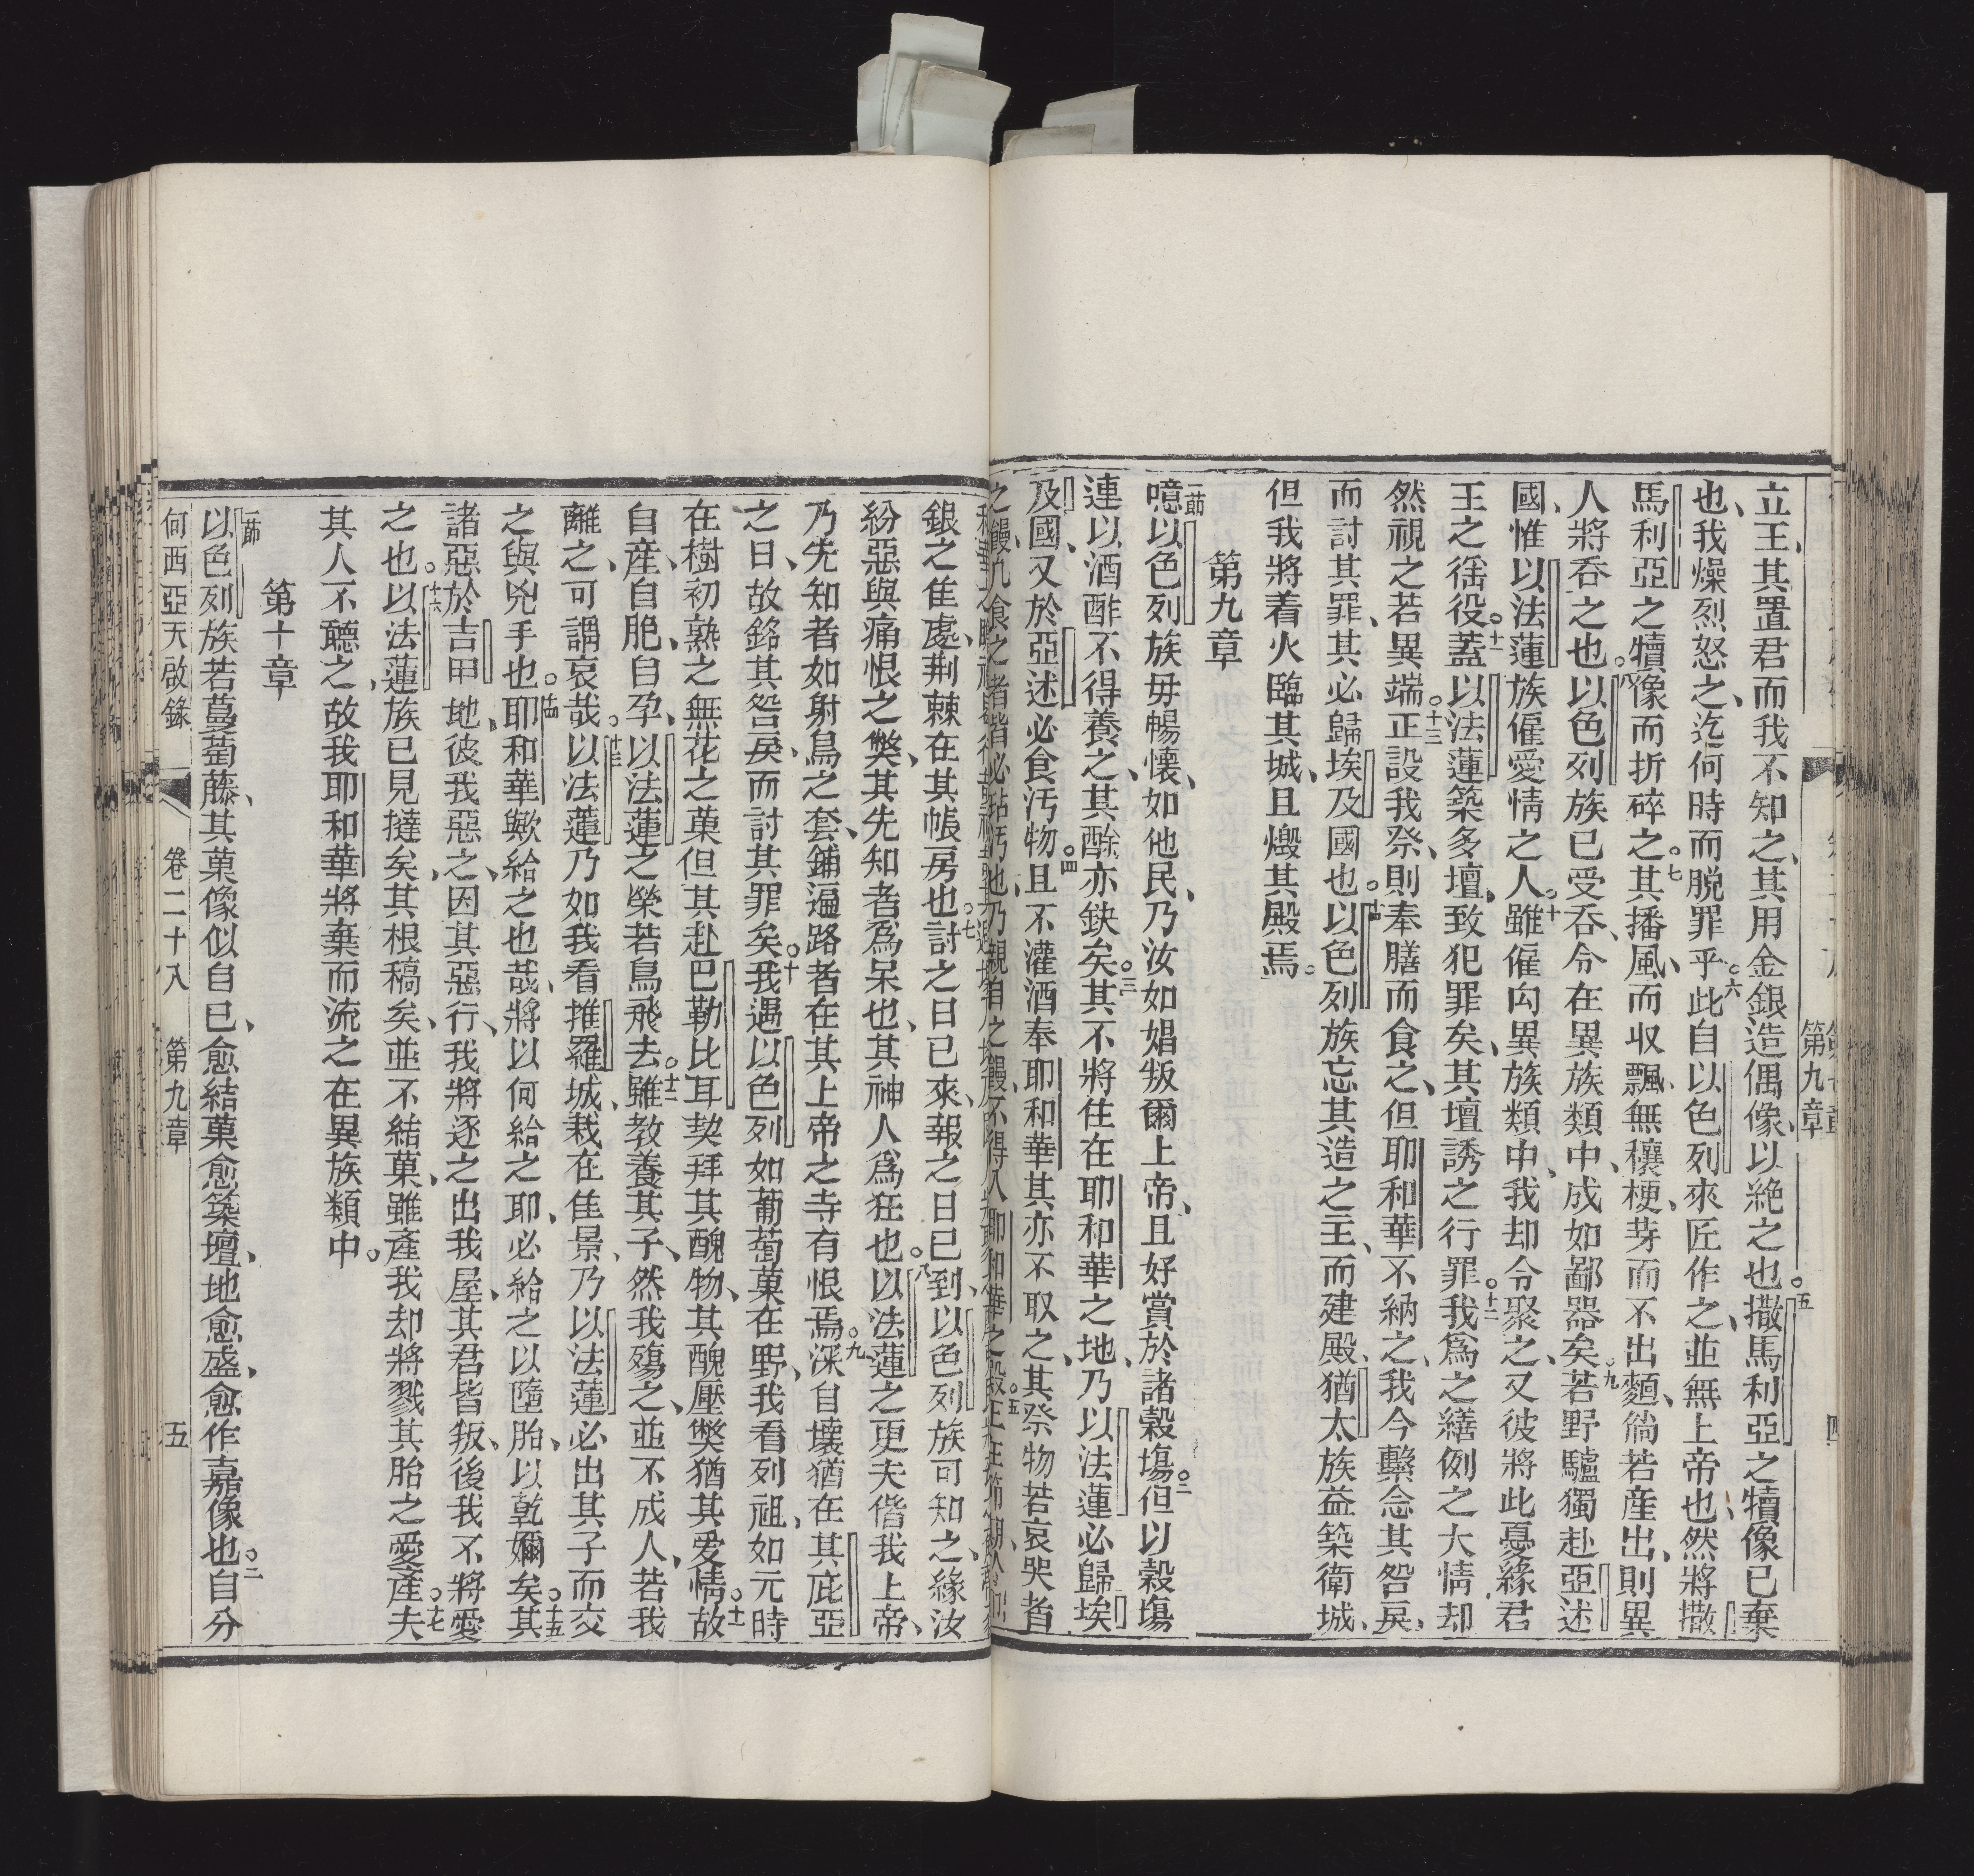 立王、其置君而我不知之、其用金銀造偶像、以絶之也。五撒馬利亞之犢像已棄
也、我燥烈怒之、迄何時而脱罪乎。六此自以色列來匠作之、並無上帝也、然將撒
馬利亞之犢像而折碎之。七其播風、而収飄、無穰梗、芽而不出麵、倘若産出、則異
人將吞之也。八以色列族已受吞、今在異族類中、成如鄙器矣。九若野驢獨赴亞述
國、惟以法蓮族僱愛情之人。十雖僱向異族類中、我却今聚之、又彼將此憂緣君
王之徭役。十一蓋以法蓮築多壇、致犯罪矣、其壇誘之行罪。十二我爲之繕例之大情却
然視之若異端。十三正設我祭、則奉膳而食之、但耶和華不納之、我今繫念其咎戾、
而討其罪、其必歸埃及國也。十四以色列族忘其造之主、而建殿、猶太族益築衛城、
但我將着火臨其城、且燬其殿焉。
第九章
一節噫以色列族毋暢懷、如他民、乃汝如娼叛爾上帝、且好賞於諸穀塲。二但以穀塲
連以酒酢不得養之、其酴亦缺矣。三其不將住在耶和華之地、乃以法蓮必歸埃
及國、又於亞述必食汚物。四且不灌酒奉耶和華、其亦不取之、其祭物若哀哭者
銀之隹處、荆棘在其帳房也。七討之日已來、報之日已到、以色列族可知之、緣汝
紛惡與痛恨之獘、其先知者爲呆也、其神人爲狂也。八以法蓮之更夫偕我上帝、
乃先知者如射鳥之套、鋪遍路者在其上帝之寺有恨焉。九深自壞猶在其庇亞
之日、故銘其咎戾、而討其罪矣。十我遇以色列如葡萄菓在野、我看列祖、如元時
在樹初熟之無花之菓但其赴巴勒比耳契拜其醜物、其醜壓獘猶其爱情。十一故
自産、自胞、自孕、以法蓮之榮若鳥飛去。十二雖教養其子、然我殤之、並不成人、若我
離之、可謂哀哉。十三以法蓮乃如我看推羅城、栽在佳景、乃以法蓮必出其子而交
之與兇手也。十四耶和華歟給之也哉、將以何給之耶、必給之以隨胎、以乾嬭矣。十五其
諸惡於吉甲地、彼我惡之、因其惡行、我將逐之出我屋、其君皆叛、後我不將愛
之也。十六以法蓮族已見撻矣、其根稿矣、並不結菓、雖產我却將戮其胎之愛產。十七夫
其人不聽之、故我耶和華將棄而流之在異族類中。
第十章
一節以色列族若蔓萄藤、其菓像似自己、愈結菓愈築壇、地愈盛、愈作嘉像也。二自分
何西亞天啟錄 卷二十八 第九章 五